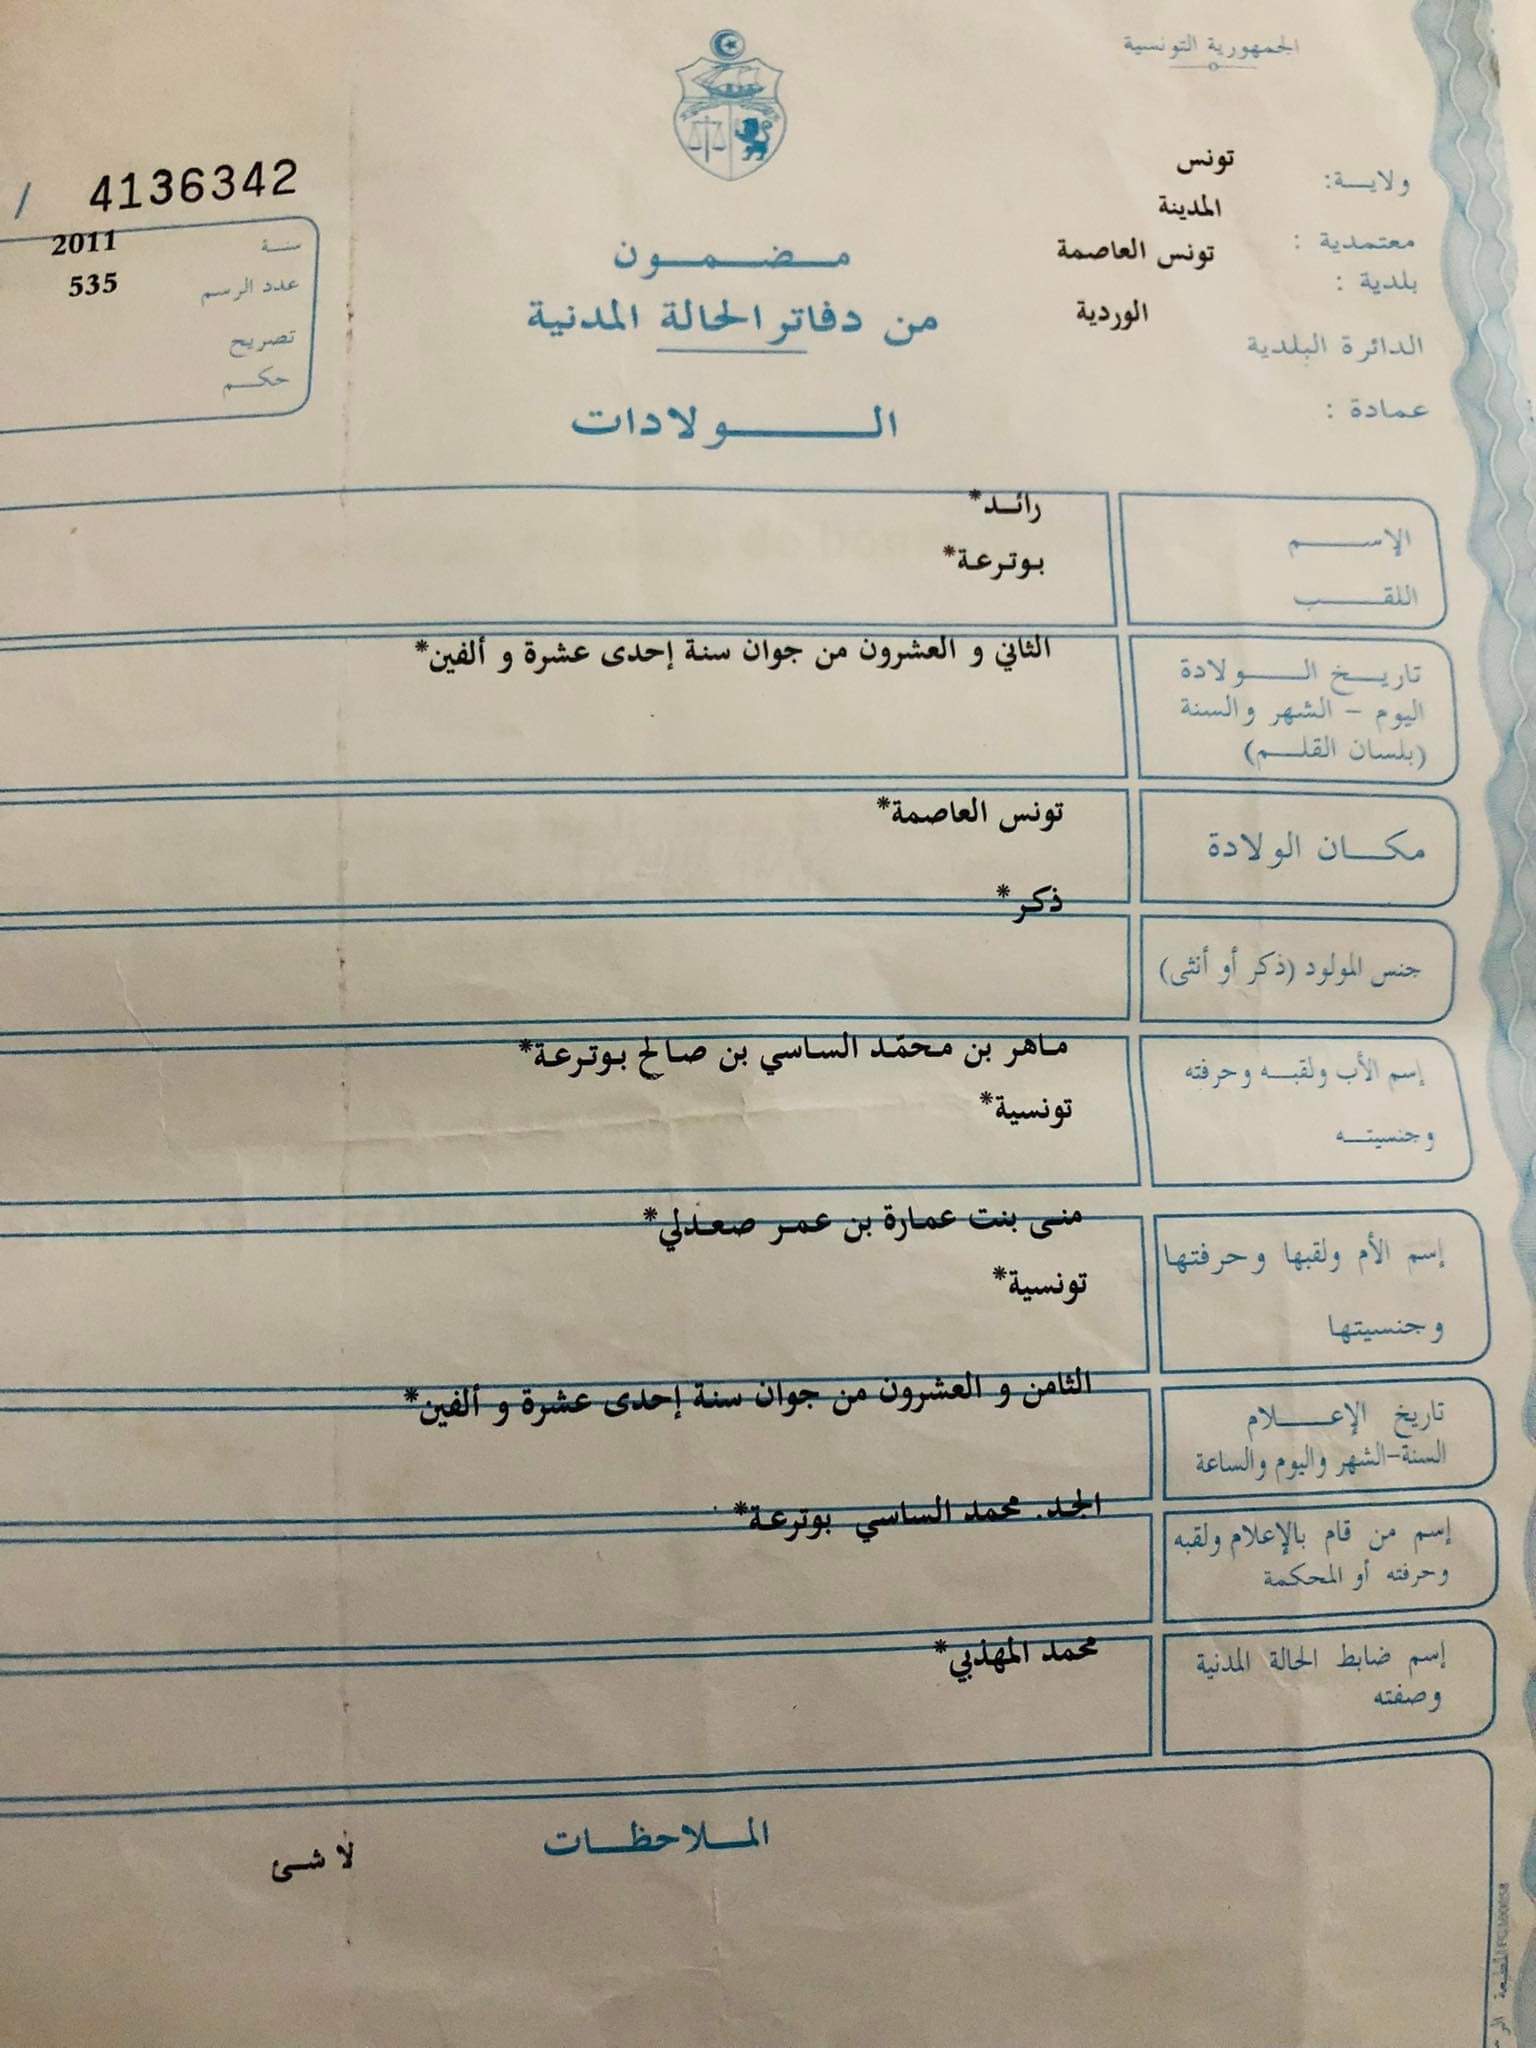 الجمهورية التونسية
ولايــة: تونس
معتمدية : المدينة
بلدية : تونس العاصمة
الدائرة البلدية الوردية
عمادة :
مـضـمـون
من دفاتر الحالة المدنية
الـولادات
/ 4136342
سنـة 2011
عدد الرسم 535
تصريح
حكـم
الإسـم رائـد*
اللقـب بوترعة*
تاريـخ الـولادة
اليوم - الشهر والسنة
(بلسان القلـم)
الثاني و العشرون من جوان سنة إحدى عشرة و ألفين*
مكـان الولادة تونس العاصمة*
جنس المولود (ذكر أو أنثى) ذكر*
إسم الأب ولقبـه وحرفته ماهر بن محمّد الساسي بن صالح بوترعة*
وجنسيتـه تونسية*
إسم الأم ولقبها وحرفتها منى بنت عمارة بن عمر صعدلي*
وجنسيتها تونسية*
تاريخ الإعـلام
السنة-الشهر واليوم والساعة
الثامن و العشرون من جوان سنة إحدى عشرة و ألفين*
إسم من قام بالإعلام ولقبه
وحرفته أو المحكمة
الجد. محمد الساسي بوترعة*
إسم ضابط الحالة المدنية
وصفته
محمد المهذبي*
المـلاحظـات
لا شـئ